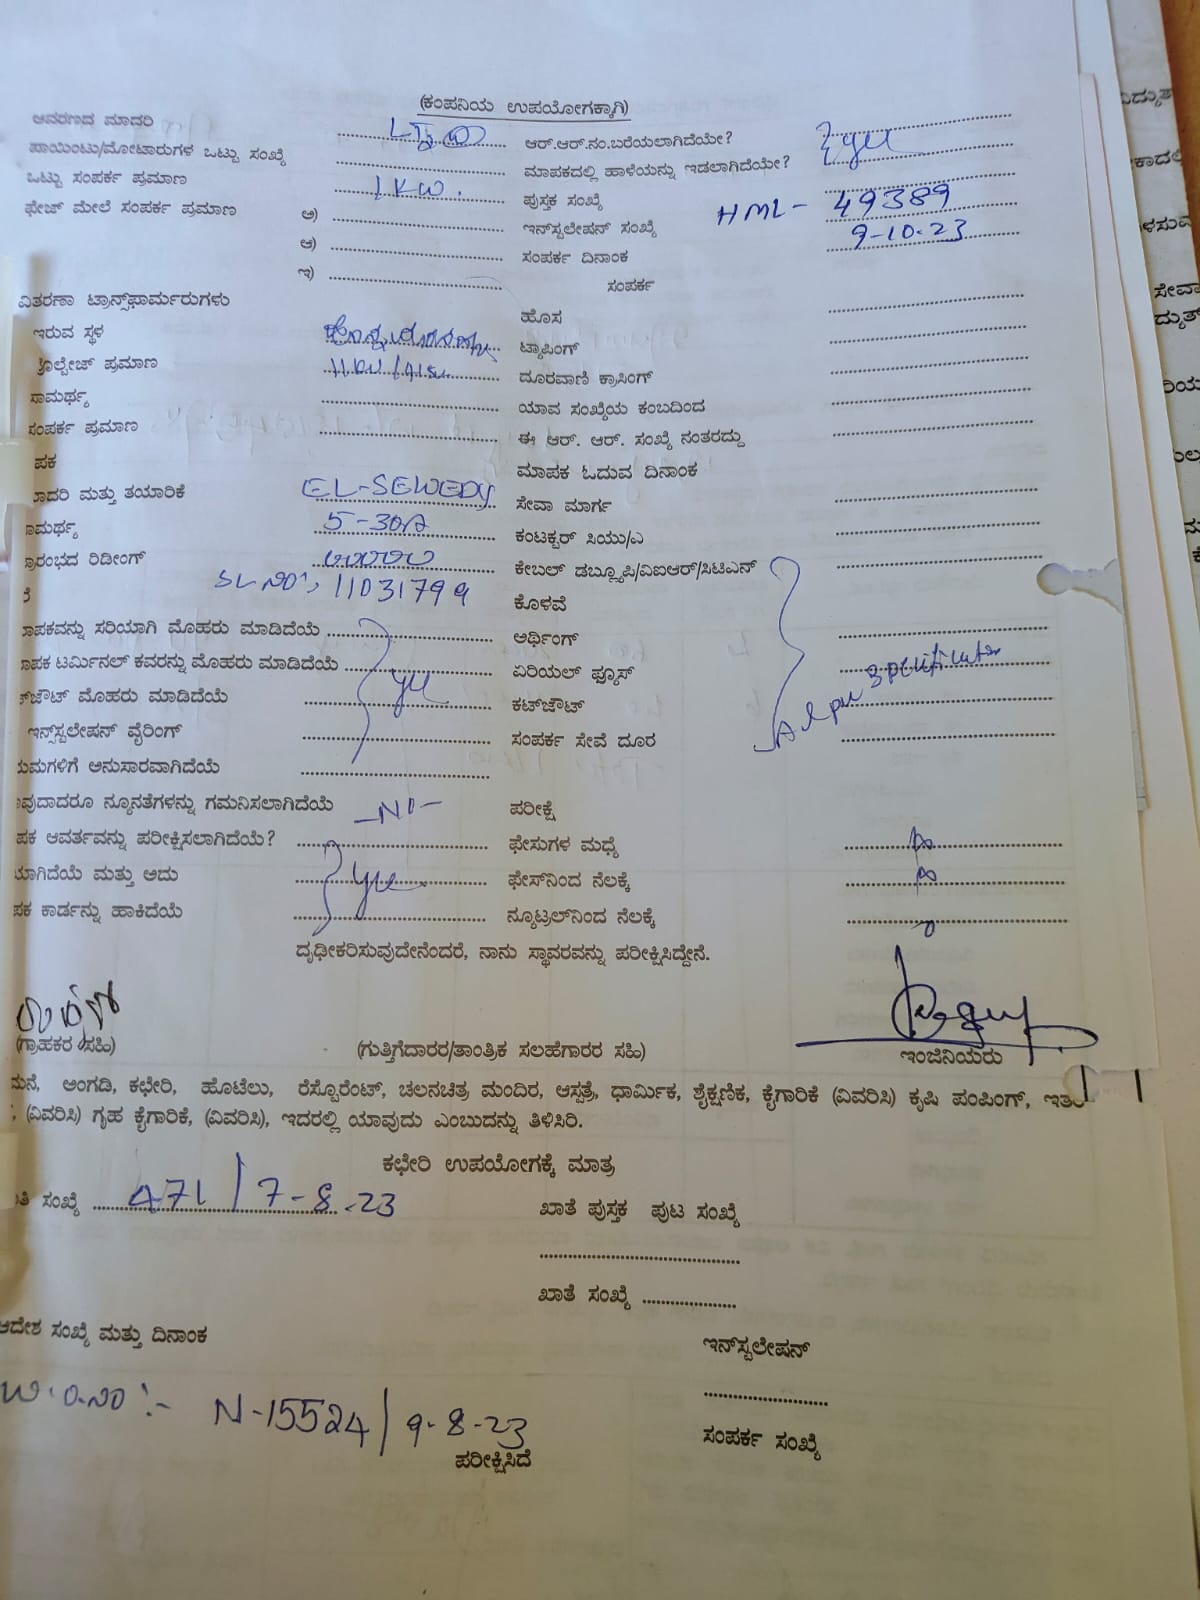 (ಕಂಪನಿಯ ಉಪಯೋಗಕ್ಕಾಗಿ)
ಆವರಣದ ಮಾದರಿ ಆರ್.ಆರ್.ನಂ.ಬರೆಯಲಾಗಿದೆಯೇ?
ಪಾಯಿಂಟು/ಮೋಟಾರುಗಳ ಒಟ್ಟು ಸಂಖ್ಯೆ ಮಾಪಕದಲ್ಲಿ ಹಾಳೆಯನ್ನು ಇಡಲಾಗಿದೆಯೇ?
ಒಟ್ಟು ಸಂಪರ್ಕ ಪ್ರಮಾಣ 1 KW. ಪುಸ್ತಕ ಸಂಖ್ಯೆ
ಫೇಜ್ ಮೇಲೆ ಸಂಪರ್ಕ ಪ್ರಮಾಣ ಅ) ಇನ್‌ಸ್ಟಲೇಷನ್ ಸಂಖ್ಯೆ HML- 49389
ಆ) ಸಂಪರ್ಕ ದಿನಾಂಕ 9-10-23
ಇ) ಸಂಪರ್ಕ
ವಿತರಣಾ ಟ್ರಾನ್ಸ್‌ಫಾರ್ಮರುಗಳು ಹೊಸ
ಇರುವ ಸ್ಥಳ ಟ್ಯಾಪಿಂಗ್
ವೋಲ್ಟೇಜ್ ಪ್ರಮಾಣ ದೂರವಾಣಿ ಕ್ರಾಸಿಂಗ್
ಸಾಮರ್ಥ್ಯ ಯಾವ ಸಂಖ್ಯೆಯ ಕಂಬದಿಂದ
ಸಂಪರ್ಕ ಪ್ರಮಾಣ ಈ ಆರ್. ಆರ್. ಸಂಖ್ಯೆ ನಂತರದ್ದು
ಪಕ ಮಾಪಕ ಓದುವ ದಿನಾಂಕ
ಾದರಿ ಮತ್ತು ತಯಾರಿಕೆ EL-SEWEDY ಸೇವಾ ಮಾರ್ಗ
ಾಮರ್ಥ್ಯ 5-30A ಕಂಟಕ್ಟರ್ ಸಿಯು/ಎ
್ರಾರಂಭದ ರಿಡೀಂಗ್ 00000 ಕೇಬಲ್ ಡಬ್ಲ್ಯೂಪಿ/ವಿಐಆರ್/ಸಿಟಿಎನ್
SL NO:, 11031799 ಕೊಳವೆ
ಾಪಕವನ್ನು ಸರಿಯಾಗಿ ಮೊಹರು ಮಾಡಿದೆಯೆ ಅರ್ಥಿಂಗ್
ಾಪಕ ಟರ್ಮಿನಲ್ ಕವರನ್ನು ಮೊಹರು ಮಾಡಿದೆಯೆ ಏರಿಯಲ್ ಫ್ಯೂಸ್
ಟ್‌ಔಟ್ ಮೊಹರು ಮಾಡಿದೆಯೆ ಕಟ್‌ಔಟ್
ಇನ್ಸ್‌ಸ್ಟಲೇಷನ್ ವೈರಿಂಗ್ ಸಂಪರ್ಕ ಸೇವೆ ದೂರ
ಯಮಗಳಿಗೆ ಅನುಸಾರವಾಗಿದೆಯೆ
ಾವುದಾದರೂ ನ್ಯೂನತೆಗಳನ್ನು ಗಮನಿಸಲಾಗಿದೆಯೆ -NO- ಪರೀಕ್ಷೆ
ಪಕ ಆವರ್ತವನ್ನು ಪರೀಕ್ಷಿಸಲಾಗಿದೆಯೆ? ಫೇಸುಗಳ ಮಧ್ಯೆ
ಯಾಗಿದೆಯೆ ಮತ್ತು ಅದು ಫೇಸ್‌ನಿಂದ ನೆಲಕ್ಕೆ
ಪಕ ಕಾರ್ಡನ್ನು ಹಾಕಿದೆಯೆ ನ್ಯೂಟ್ರಲ್‌ನಿಂದ ನೆಲಕ್ಕೆ
ದೃಢೀಕರಿಸುವುದೇನೆಂದರೆ, ನಾನು ಸ್ಥಾವರವನ್ನು ಪರೀಕ್ಷಿಸಿದ್ದೇನೆ.
(ಗ್ರಾಹಕರ ಸಹಿ) (ಗುತ್ತಿಗೆದಾರರ/ತಾಂತ್ರಿಕ ಸಲಹೆಗಾರರ ಸಹಿ) ಇಂಜಿನಿಯರು
ಮನೆ, ಅಂಗಡಿ, ಕಛೇರಿ, ಹೊಟೆಲು, ರೆಸ್ಟೋರೆಂಟ್, ಚಲನಚಿತ್ರ ಮಂದಿರ, ಆಸ್ಪತ್ರೆ, ಧಾರ್ಮಿಕ, ಶೈಕ್ಷಣಿಕ, ಕೈಗಾರಿಕೆ (ವಿವರಿಸಿ) ಕೃಷಿ ಪಂಪಿಂಗ್, ಇತರ
(ವಿವರಿಸಿ) ಗೃಹ ಕೈಗಾರಿಕೆ, (ವಿವರಿಸಿ), ಇದರಲ್ಲಿ ಯಾವುದು ಎಂಬುದನ್ನು ತಿಳಿಸಿರಿ.
ಕಛೇರಿ ಉಪಯೋಗಕ್ಕೆ ಮಾತ್ರ
ತಿ ಸಂಖ್ಯೆ 471 / 7-8-23 ಖಾತೆ ಪುಸ್ತಕ ಪುಟ ಸಂಖ್ಯೆ
ಖಾತೆ ಸಂಖ್ಯೆ
ಆದೇಶ ಸಂಖ್ಯೆ ಮತ್ತು ದಿನಾಂಕ ಇನ್‌ಸ್ಟಲೇಷನ್
W.O.NO :- N-15524 / 9-8-23
ಪರೀಕ್ಷಿಸಿದೆ ಸಂಪರ್ಕ ಸಂಖ್ಯೆ